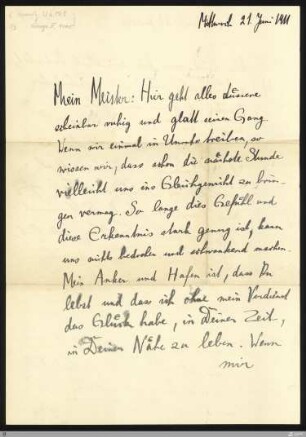 Mittwoch 21 Juni 1911
Mein Meister: Hier geht alles äussere
scheinbar ruhig und glatt seinen Gang
Wenn wir einmal in Unruhe treiben, so
wissen wir, dass schon die nächste Stunde
vielleicht uns ins Gleichgewicht zu brin-
gen vermag. So lange dies Gefühl und
diese Erkenntnis stark genug ist, kann
uns nichts bedrohen und schwankend machen.
Mein Anker und Hafen ist, dass Du
lebst und dass ich ohne mein Verdienst
das Glück habe, in Deiner Zeit,
in Deiner Nähe zu leben. Wenn
mir